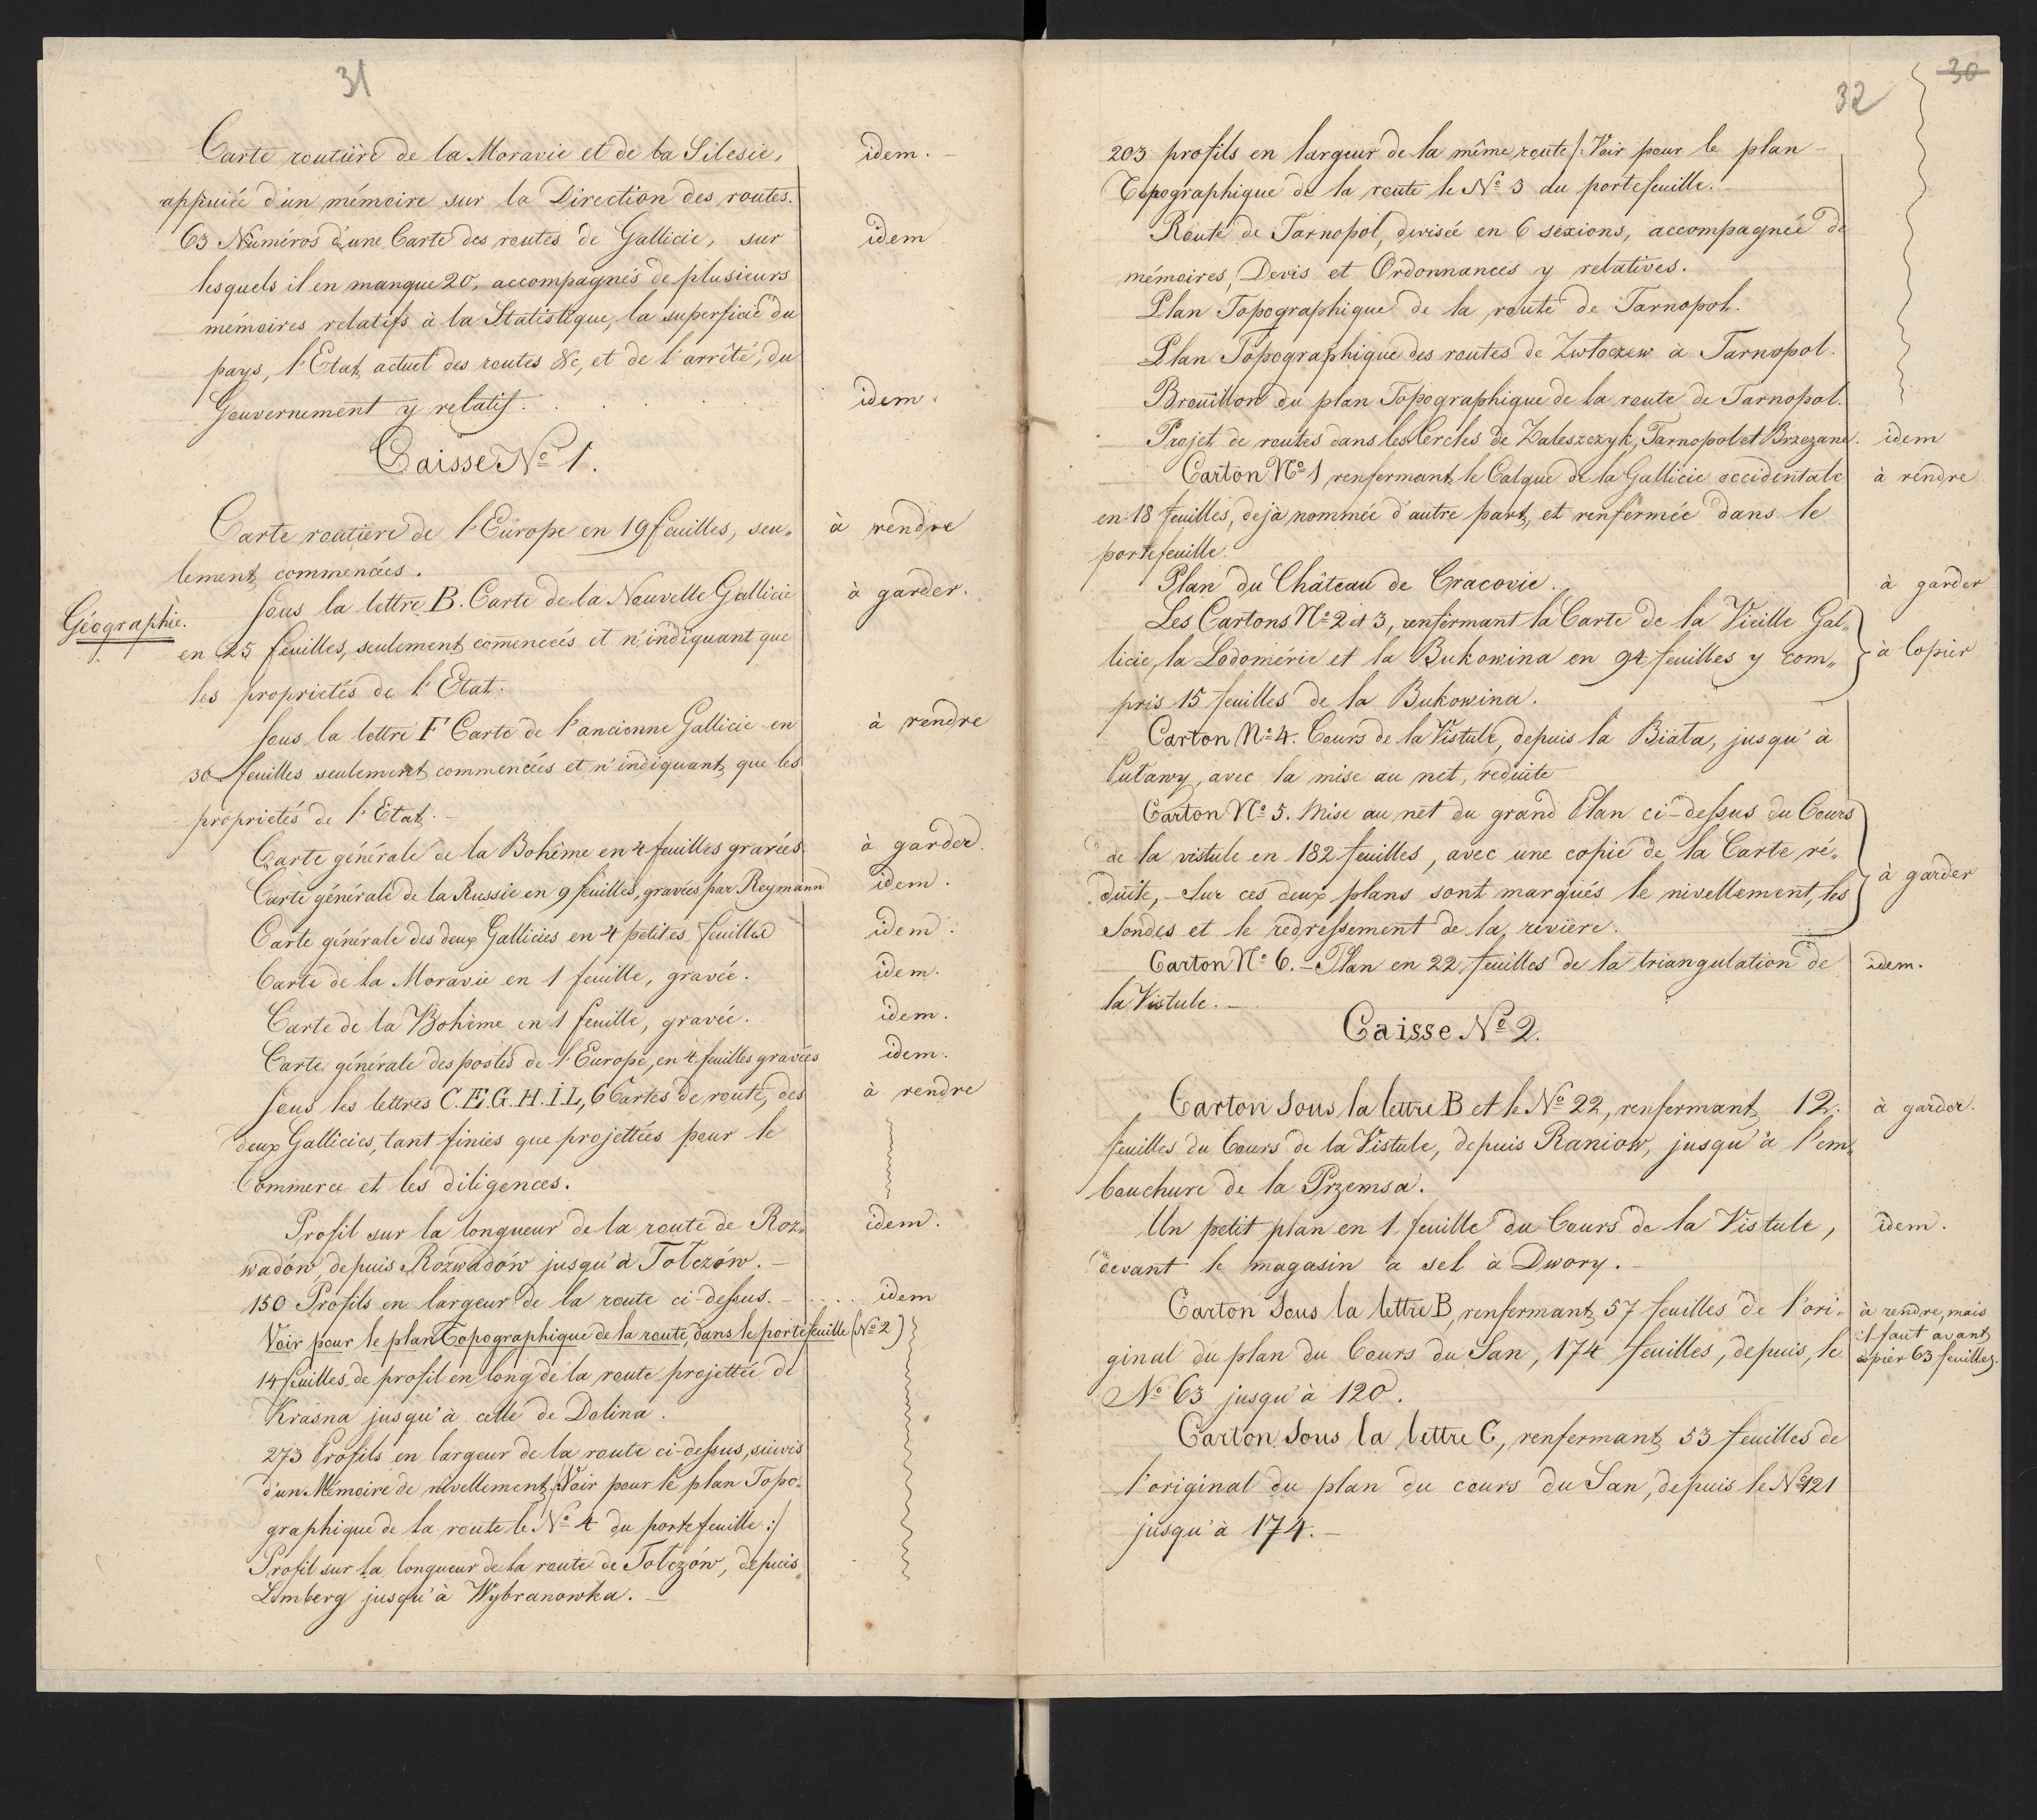 31
Carte routière de la Moravie et de la Silesie, idem.
appuiée d'un mémoire sur la Direction des routes.
63 Numéros d'une Carte des routes de Gallicie, sur idem
lesquels il en manque 20, accompagnés de plusieurs
mémoires relatifs à la Statistique, la superficie du
pays, l'Etat actuel des routes &c, et de l'arrêté, du
Gouvernement y relatif. idem.
Caisse No 1.
Carte routiere de l'Europe en 19 feuilles, seu„ à rendre
lement commencées.
Géographie.
Sous la lettre B. Carte de la Nouvelle Gallicie à garder.
en 25 feuilles, seulement commencées et n'indiquant que
les proprietés de l'Etat.
Sous la lettre F Carte de l'ancienne Gallicie en à rendre
30 feuilles seulement commencées et n'indiquant que les
proprietés de l'Etat.
Carte générale de la Bohême en 4 feuilles gravées. à garder.
Carte générale de la Russie en 9 feuilles, gravées par Reymann idem.
Carte générale des deux Gallicies en 4 petites feuilles idem.
Carte de la Moravie en 1 feuille, gravée. idem.
Carte de la Bohème en 1 feuille, gravée. idem.
Carte générale des postes de l'Europe, en 4 feuilles gravées idem.
Sous les lettres C.E.G.H.I.L, 6 Cartes de route, des à rendre
deux Gallicies, tant finies que projettées pour le
Commerce et les diligences.
Profil sur la longueur de la route de Roz„ idem.
wadów, depuis Rozwadów jusqu'à Tolczów. –
150 Profils en largeur de la route ci-dessus. – .... idem
Voir pour le plan Topographique de la route, dans le portefeuille (No 2)
14 feuilles de profil en long de la route projettée de
Krasna jusqu'à celle de Dolina.
273 Profils en largeur de la route ci-dessus, suivis
d'un Mémoire de nivellement /: Voir pour le plan Topo„
graphique de la route le No 4 du portefeuille :/
Profil sur la longueur de la route de Tolczów, depuis
Lemberg jusqu'à Wybranowka. –
30
32
203 profils en largeur de la même route /: Voir pour le plan –
Topographique de la route le No 3 du portefeuille. –
Route de Tarnopol, divisée en 6 sexions, accompagnée de
mémoires, Devis et Ordonnances y relatives.
Plan Topographique de la route de Tarnopol.
Plan Topographique des routes de Zwloczew à Tarnopol.
Brouillon du plan Topographique de la route de Tarnopol.
Projet de routes dans les Cercles de Zaleszczyk, Tarnopol et Brzezane. idem
Carton No 1 renfermant le Calque de la Gallicie occidentale à rendre
en 18 feuilles, dejà nommée d'autre part, et renfermée dans le
portefeuille.
Plan du Château de Cracovie. à garder
Les Cartons No 2 et 3, renfermant la Carte de la Vieille Gal„
licie, la Lodomérie et la Bukowina en 94 feuilles y com„ à Copier
pris 15 feuilles de la Bukowina.
Carton No 4. Cours de la Vistule, depuis la Biała, jusqu'à
Puławy, avec la mise au net, reduite
Carton No 5. Mise au net du grand Plan ci-dessus du Cours
de la vistule en 182 feuilles, avec une copie de la Carte ré„ à garder
duite, – Sur ces deux plans sont marqués le nivellement, les
sondes et le redressement de la rivière.
Carton No 6. – Plan en 22 feuilles de la triangulation de idem.
la Vistule. –
Caisse No 2.
Carton sous la lettre B et le No 22, renfermant 12. à garder.
feuilles du Cours de la Vistule, depuis Raniow, jusqu'à l'em„
bouchure de la Przemsa.
Un petit plan en 1 feuille du Cours de la Vistule, idem.
devant le magasin à sel à Dwory. –
Carton sous la lettre B, renfermant 57 feuilles de l'ori„ à rendre, mais
il faut avant
ginal du plan du Cours du San, 174 feuilles, depuis, le copier 63 feuilles.
No 63 jusqu'à 120.
Carton sous la lettre C, renfermant 53 feuilles de
l'original du plan du cours du San, depuis le No 121
jusqu'à 174. –